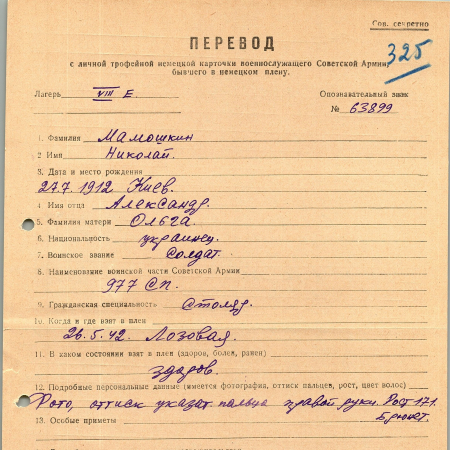 Сов. секретно
325
ПЕРЕВОД
с личной трофейной немецкой карточки военнослужащего Советской Армии,
бывшего в немецком плену.
Лагерь VIII E. Опознавательный знак
№ 63899
1. Фамилия Мамошкин
2 Имя Николай.
3. Дата и место рождения
27.7. 1912 Киев.
4 Имя отца Александр.
5. Фамилия матери Ольга.
6. Национальность украинец.
7. Воинское звание Солдат.
8. Наименование воинской части Советской Армии
977 СП.
9. Гражданская специальность Столяр.
10. Когда и где взят в плен
26.5.42. Лозовая.
11. В каком состоянии взят в плен (здоров, болен, ранен)
здоров.
12. Подробные персональные данные (имеется фотография, оттиск пальцев, рост, цвет волос)
Фото, оттиск указат. пальца правой руки. Рост 171.
Брюнет.
13. Особые приметы